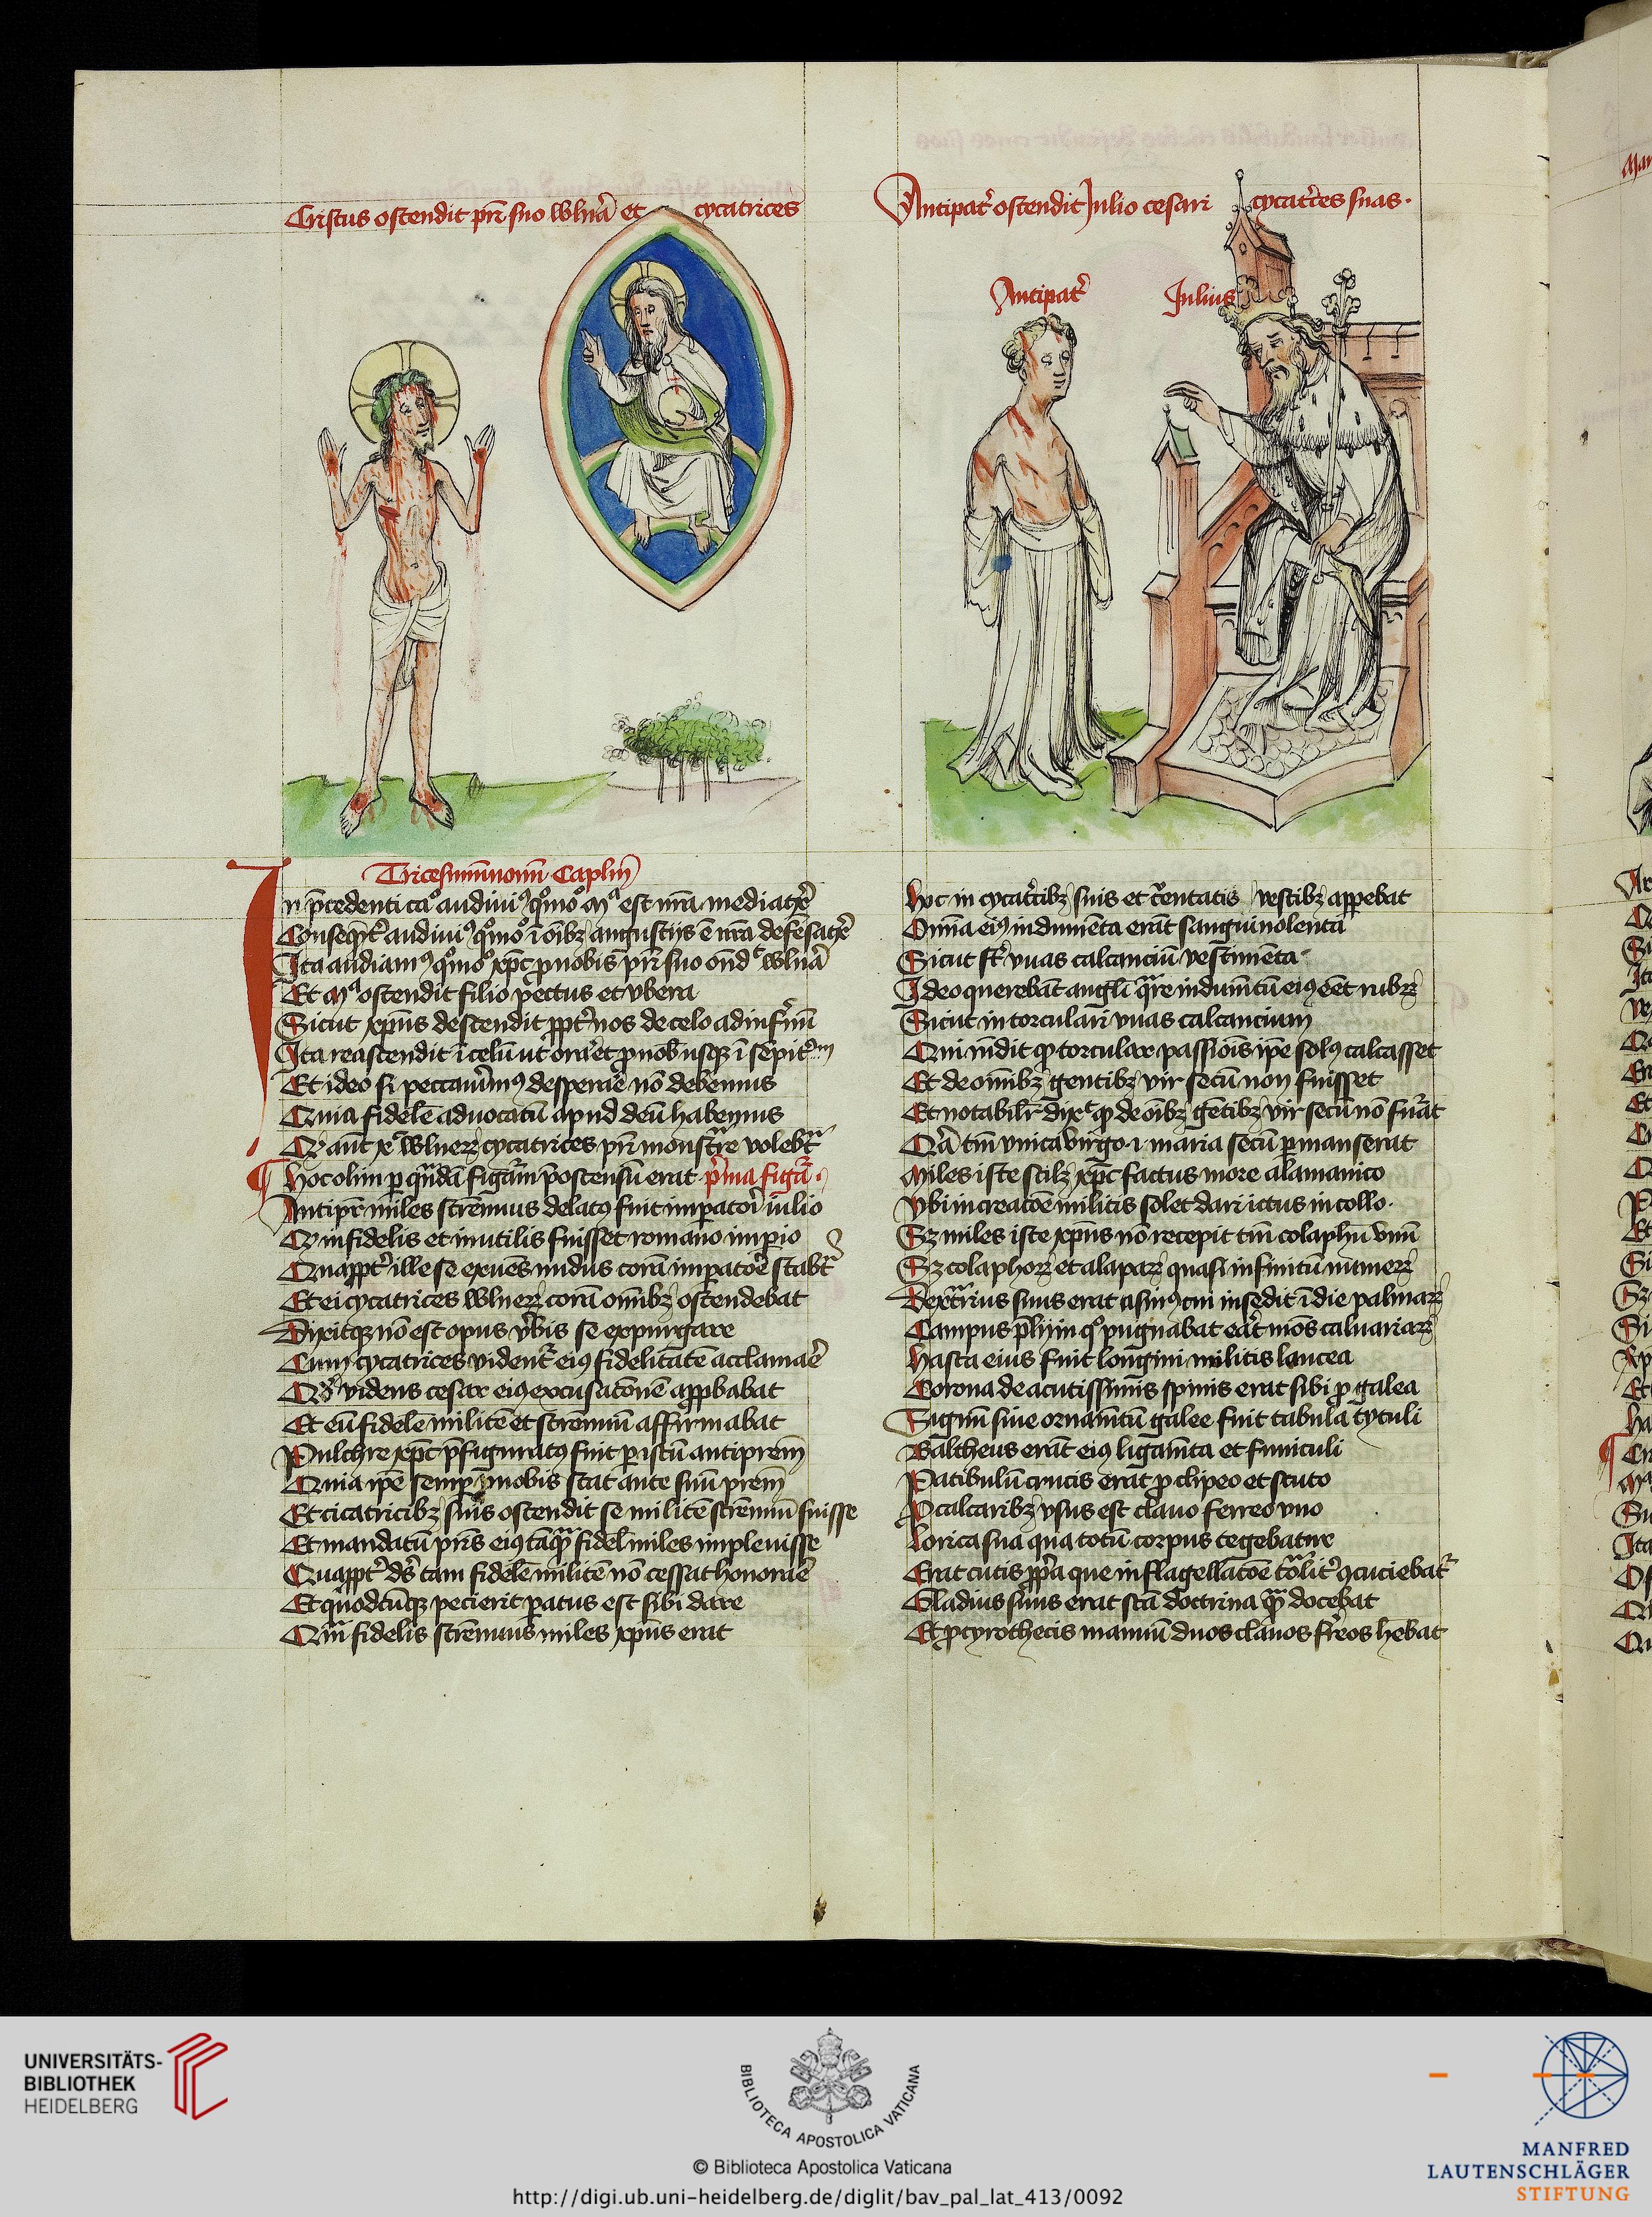 Cristus ostendit pr̄i suo wln̄a et cycatrices
Antipat͛ ostendit Julio cesari cycat͛ces suas ·
Antipat͛
Julius
Tricesimūnonū Caplm̄
In p̄cedenti ca° audiuimꝰ q°mo° Mᵃ est nr̄a mediat͛x
Conseq̄nt͛ audiuimꝰ q°mo° ī oībꝫ angustijs ē nr̄a defēsat͛x
Ita audiamꝰ q°mo° xp̄c ꝓ nobis pr̄i suo ondᵗ wln̄a
Et Mᵃ ostendit filio pectus et vbera
Sicut xp̄us descendit ꝓpt͛ nos de celo ad infernū
Ita reascendit ī celū ut oraret ꝓ nob̄ usqꝫ ī sēpit͛m
Et ideo si peccauim͛ꝰ desperaͤ nō debemus
Quia fidelē aduocatū apud deū habemus
Qꝫ aūt xᵒ wlnerꝝ cycatrices pr̄i monst͛re voleb͛t
¶ Hoc olim ꝑ quādā figᵃm p̄ostensū erat p͛ma figᵃ ·
Antip̄r miles strēnuus delatꝰ fuit imꝑatori iulio
Qꝫ infidelis et inutilis fuisset romano imꝑio
Quaꝓpt͛ ille se exuēs nudus corā imꝑatoͤ stab͛t
Et ei cycatrices wlnerꝝ corā om̄ibꝫ ostendebat
Dixitqꝫ nō est opus v͛bis se expurgare
Cum cycatrices vident͛ eiꝰ fidelitatē acclamaͤ
Qd̄ videns cesar eiꝰ excusatōnē apꝓbabat
Et eū fidelē militē et strēnuū affirmabat
Pulchre xp̄c p̄figuratꝰ fuit ꝑ istū antipr̄em
Quia ip̄e semꝑ ꝓ nobis stat ante suū pr̄em
Et cicatricibꝫ suis ostendit se militē strēnuū fuisse
Et mandatū pr̄is eiꝰ tāqᵃ fidel̄ miles impleuisse
Quaꝓpt͛ ds̄ tam fidelē militē nō cessat honoraͤ
Et quodcūqꝫ pecierit ꝑatus est sibi dare
Qm̄ fidelis strēnuus miles xp̄us erat
Hoc in cycat͛cibꝫ suis et c͛uentatis vestibꝫ appebat
Om̄ia eiꝰ indumēta erāt sanguinolenta
Sicut st̄ vuas calcanciū vestimēta ·
Ideo querebāt angl̄i quare indumtū eiꝰ eēt rubrꝫ
Sicut in torculari vuas calcancium
Qui rn̄dit qꝫ torcular passiōis ip̄e solꝰ calcasset
Et de om̄ibꝫ gentibꝫ vir secū non fuisset
Et notabilr̄ dixᵗ qꝫ de oībꝫ gētibꝫ vir secū nō fu͛at
Qᵃ tm̄ vnica virgo · i · maria secū ꝑmanserat
Miles iste scilꝫ xp̄c factus more alamanico
Vbi in creacōe militis solet dari ictus in collo ·
Sꝫ miles iste xp̄us nō recepit tm̄ colaphū vnū
Sꝫ colaphorꝝ et alaparꝝ quasi infinitū numerꝝ
Dextrarius suus erat asinꝰ cui insedit ī die palmarꝝ
Campus p̄lij in q° pugnabat erat mōs caluariarꝝ
Hasta eius fuit longini militis lancea
Corona de acutissimis spinis erat sibi ꝓ galea
Signū siue ornam̄tū galee fuit tabula tytuli
Baltheus erāt eiꝰ ligam̄ta et funiculi
Patibulū crucis erat ꝓ clipeo et scuto
Ꝓ calcaribꝫ vsus est clauo ferreo vno
Lorica sua qua totū corpus tegebature
Erat cutis ꝓp͛a que in flagellacōe to͛lit͛ ꝯcuciebat͛
Gladius suus erat scā doctrina qᵃ docebat
Et ꝓ cyrothecis manuū duos clauos f͛reos hēbat
UNIVERSITÄTS-
BIBLIOTHEK
HEIDELBERG
BIBLIOTECA APOSTOLICA VATICANA
© Biblioteca Apostolica Vaticana
http://digi.ub.uni-heidelberg.de/diglit/bav_pal_lat_413/0092
MANFRED
LAUTENSCHLÄGER
STIFTUNG